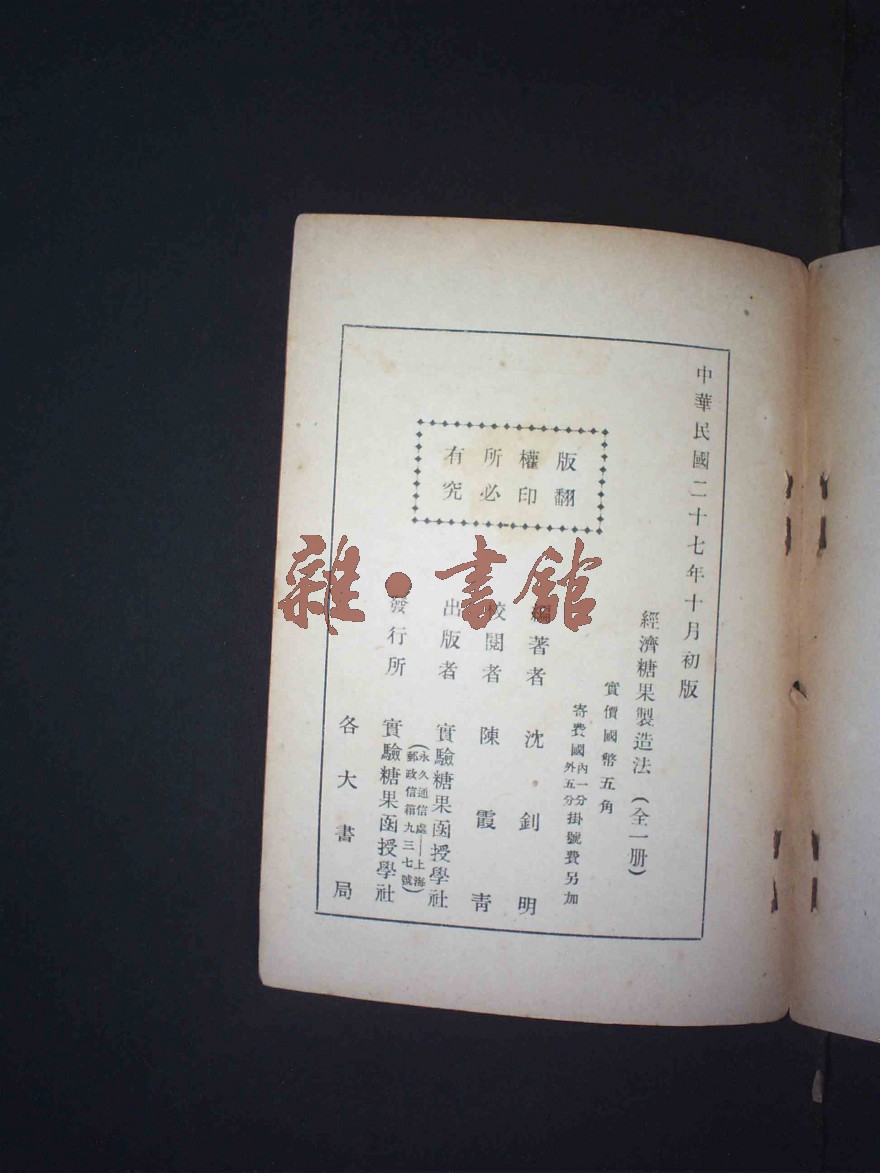 中華民國二十七年十月初版
經濟糖果製造法（全一册）
實價國幣五角
寄費國內一分外五分掛號費另加
版權所有
翻印必究
編著者 沈釗明
校閱者 陳霞青
出版者 實驗糖果函授學社
（永久通信處——上海
郵政信箱九三七號）
發行所 實驗糖果函授學社
各大書局
雜·書館